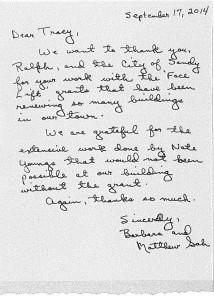 September 17, 2014
Dear Tracy,
We want to thank you,
Ralph, and the City of Sandy
for your work with the "Face
Lift" grants that have been
renewing so many buildings
in our town.
We are grateful for the
extensive work done by Nate
Youngs that would not been
possible at our building
without the grant.
Again, thanks so much.
Sincerely,
Barbara and
Matthew